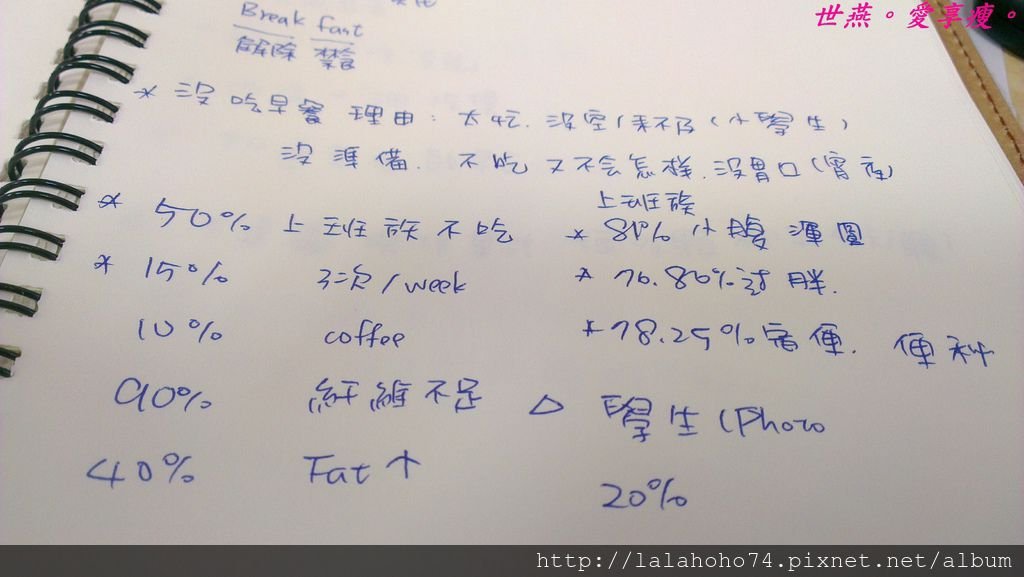 世燕。愛享瘦。
Break fast
解除 禁食
* 沒吃早餐 理由: 太忙. 沒空/來不及 (小學生)
沒準備. 不吃又不会怎樣. 沒胃口(宵夜)
上班族
* 50% 上班族不吃 * 81% 小腹渾圓
* 15% 3次/week * 76.86% 过胖.
10% coffee * 78.25% 宿便. 便秘
90% 纖維不足 △ 學生 (Photo
40% Fat↑ 20%
http://lalahoho74.pixnet.net/album